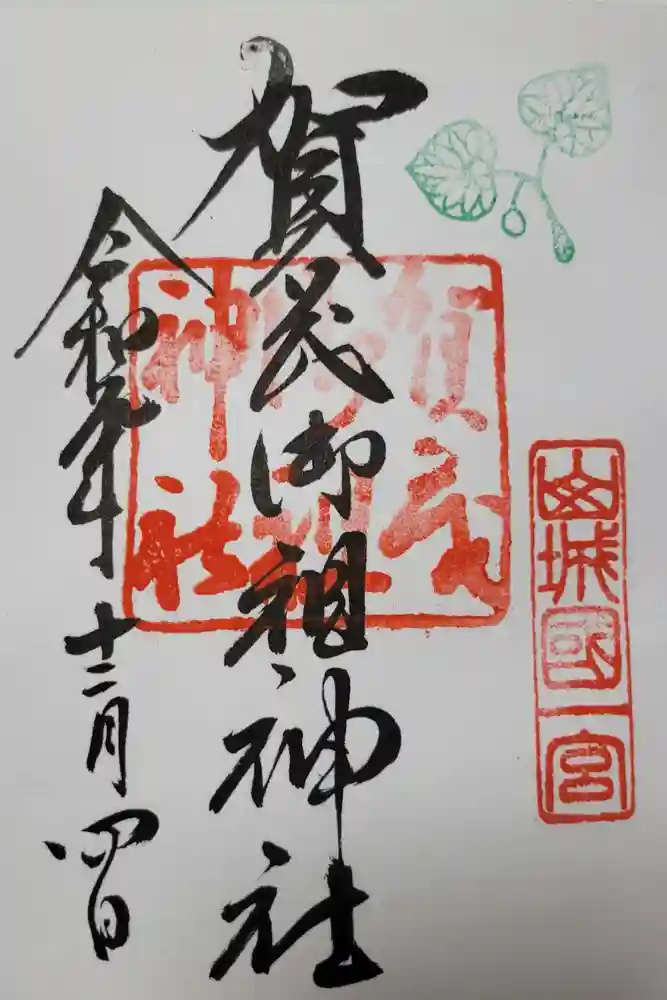 山城國一宮
賀茂御祖神社
賀茂
御祖
神社
令和元年十二月四日